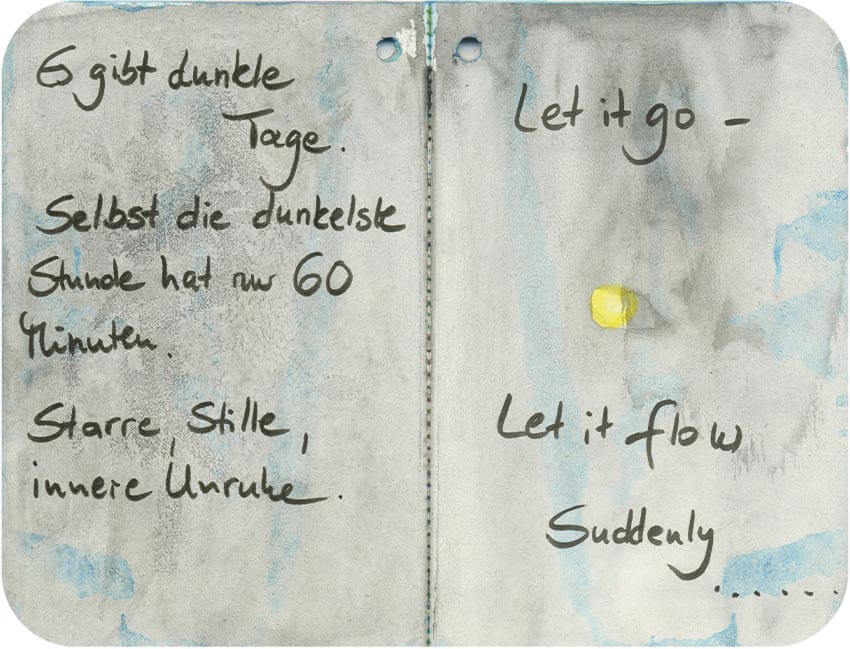 Es gibt dunkle
Tage.
Selbst die dunkelste
Stunde hat nur 60
Minuten.
Starre, Stille,
innere Unruhe.
Let it go –
Let it flow
Suddenly
.......